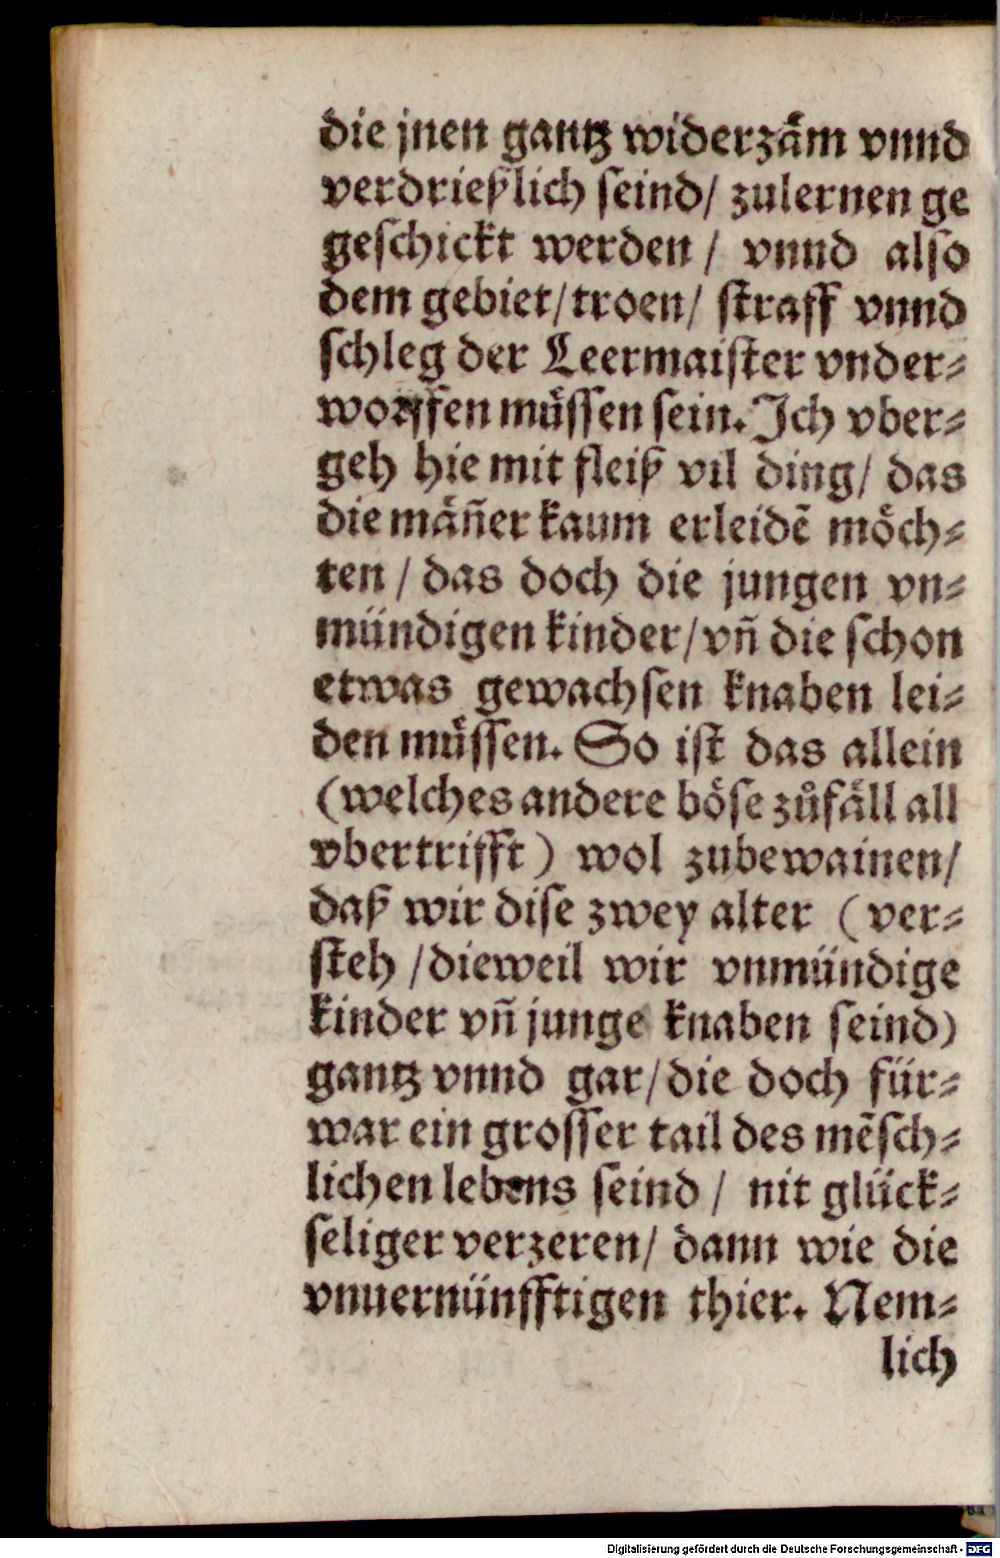 die jnen gantz widerzäm vnnd
verdrießlich seind/ zulernen ge
geschickt werden / vnnd also
dem gebiet/troen/ straff vnnd
schleg der Leermaister vnder⸗
worffen müssen sein. Ich vber⸗
geh hie mit fleiß vil ding/ das
die mäñer kaum erleidẽ möch⸗
ten / das doch die jungen vn⸗
mündigen kinder/vñ die schon
etwas gewachsen knaben lei⸗
den müssen. So ist das allein
(welches andere böse zůfäll all
vbertrifft) wol zubewainen/
daß wir dise zwey alter (ver⸗
steh /dieweil wir vnmündige
kinder vñ junge knaben seind)
gantz vnnd gar/die doch für⸗
war ein grosser tail des mẽsch⸗
lichen lebens seind / nit glück⸗
seliger verzeren/ dann wie die
vnuernünfftigen thier. Nem⸗
lich
Digitalisierung gefördert durch die Deutsche Forschungsgemeinschaft - DFG